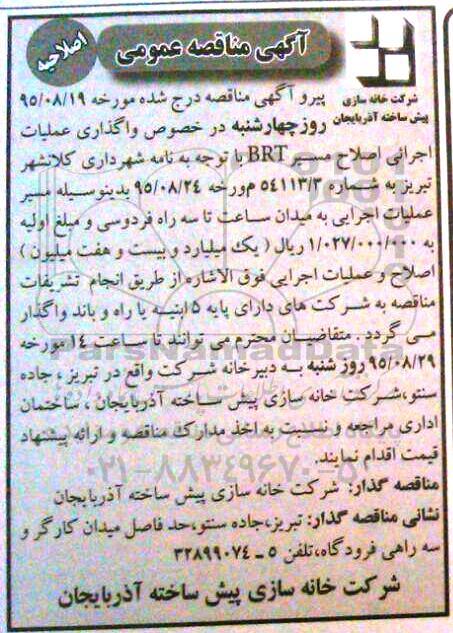 آگهی مناقصه عمومی
اصلاحیه
شرکت خانه سازی
پیش ساخته آذربایجان
پیرو آگهی مناقصه درج شده مورخه ۹۵/۰۸/۱۹
روز چهارشنبه در خصوص واگذاری عملیات
اجرائی اصلاح مسیر BRT با توجه به نامه شهرداری کلانشهر
تبریز به شماره ۵۴۱۱۳/۳ مورخه ۹۵/۰۸/۲۴ بدینوسیله مسیر
عملیات اجرایی به میدان ساعت تا سه راه فردوسی و مبلغ اولیه
به ۱/۰۲۷/۰۰۰/۰۰۰ ریال ( یک میلیارد و بیست و هفت میلیون )
اصلاح و عملیات اجرایی فوق الاشاره از طریق انجام تشریفات
مناقصه به شرکت های دارای پایه ۵ ابنیه یا راه و باند واگذار
می گردد . متقاضیان محترم می توانند تا ساعت ۱۴ مورخه
۹۵/۰۸/۲۹ روز شنبه به دبیرخانه شرکت واقع در تبریز ، جاده
سنتو،شرکت خانه سازی پیش ساخته آذربایجان ، ساختمان
اداری مراجعه و نسبت به اخذ مدارک مناقصه و ارائه پیشنهاد
قیمت اقدام نمایند.
مناقصه گذار: شرکت خانه سازی پیش ساخته آذربایجان
نشانی مناقصه گذار: تبریز،جاده سنتو،حد فاصل میدان کارگر و
سه راهی فرودگاه،تلفن ۵ ـ ۳۲۸۹۹۰۷۴
شرکت خانه سازی پیش ساخته آذربایجان
ParsNamadData
۰۲۱-۸۸۳۴۹۶۷۰-۵